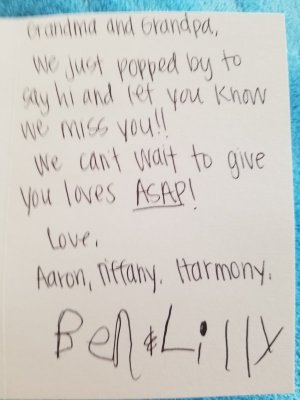 Grandma and Grandpa,
We just popped by to
say hi and let you know
we miss you!!
We can't wait to give
you loves ASAP!
Love,
Aaron, Tiffany, Harmony,
Ben & Lilly